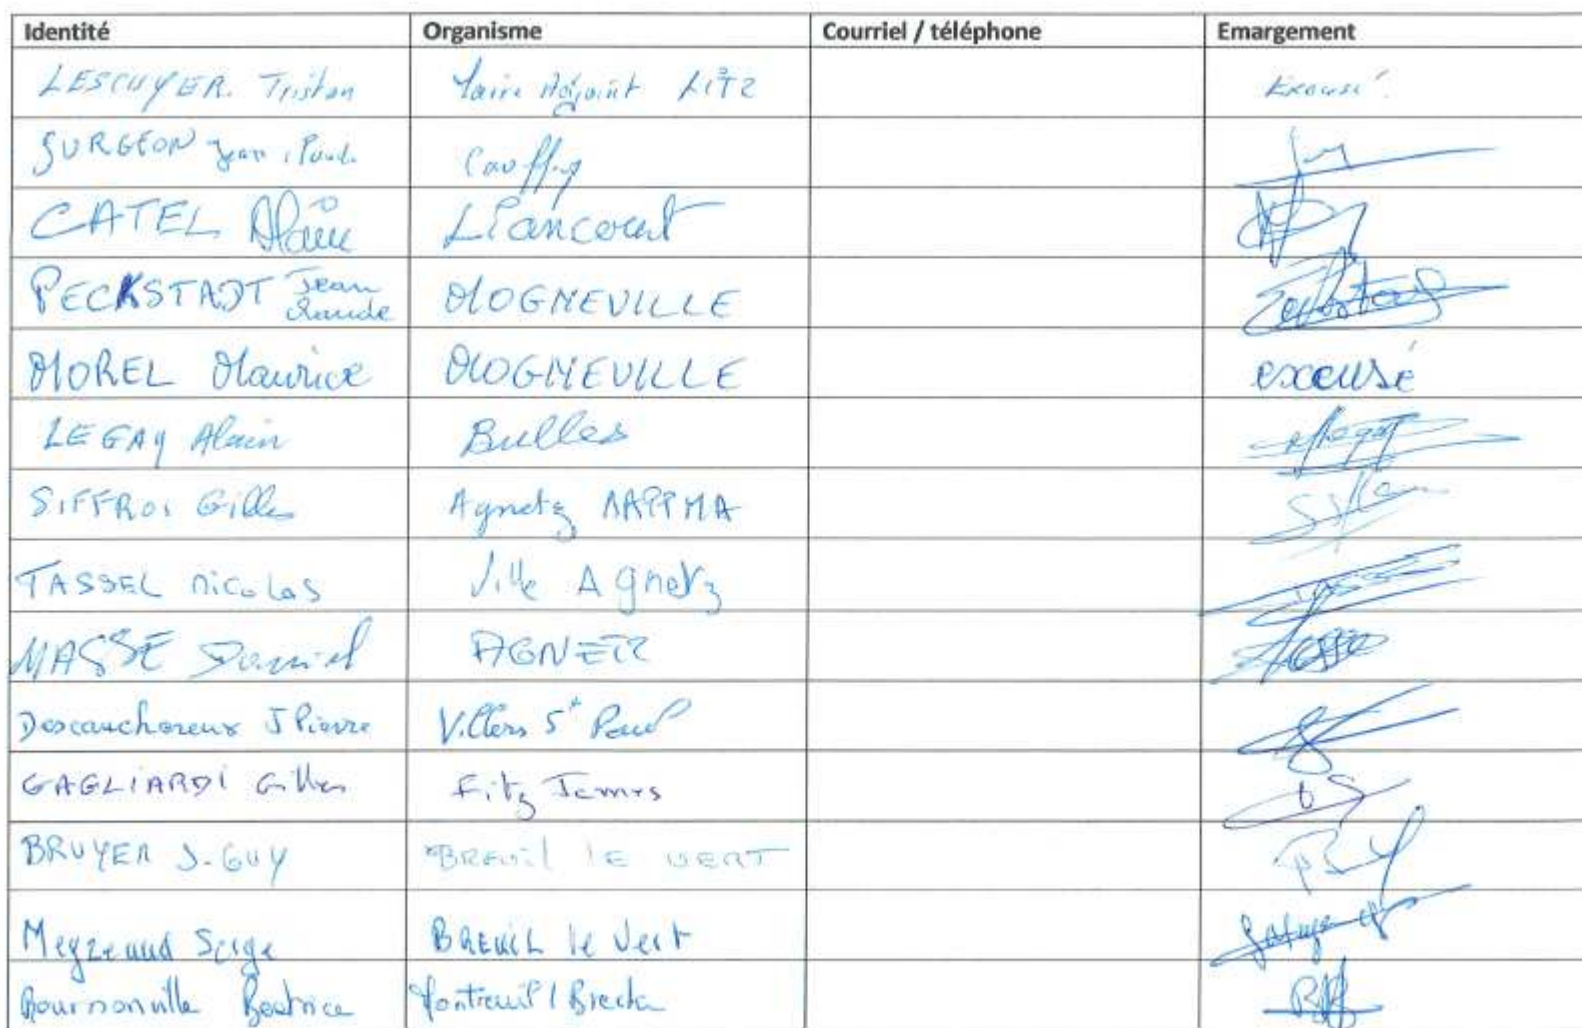 Identité Organisme Courriel / téléphone Emargement
LESCUYER Tristan Maire Adjoint LITZ Excusé
SURGEON Jean Paul Cauffry
CATEL Alain Liancourt
PECKSTADT Jean Claude MOGNEVILLE
MOREL Maurice MOGNEVILLE excusé
LEGAY Alain Bulles
SIFFROI Gilles Agnetz AAPPMA
TASSEL Nicolas Ville Agnetz
MASSE Daniel AGNETZ
Descauchereux J Pierre Villers St Paul
GAGLIARDI Gilles Fitz James
BRUYER J-GUY BREUIL LE VERT
Serge BREUIL le Vert
Bournonville Beatrice